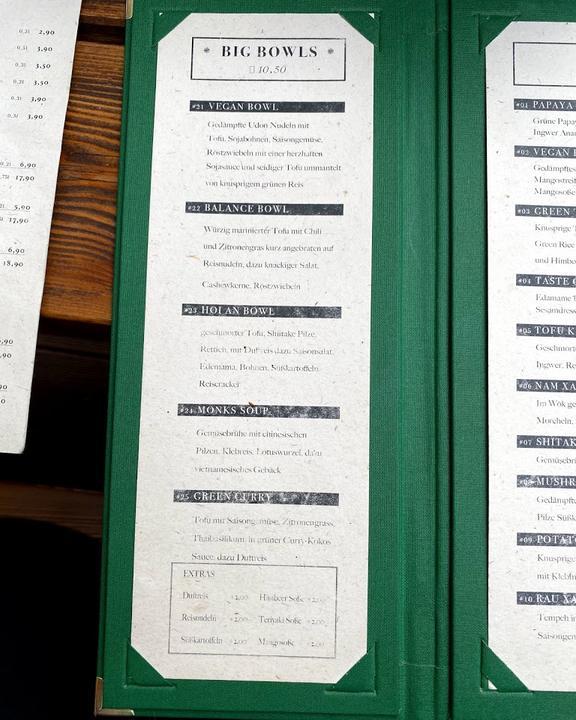 0,2l 2,90
0,5l 3,90
0,2l 3,50
0,2l 3,50
0,2l 3,90
0,2l 3,90
6,90
17,90
5,90
17,90
6,90
18,90
,90
,90
90
0
BIG BOWLS
10,50
#21 VEGAN BOWL
Gedämpfte Udon Nudeln mit
Tofu, Sojabohnen, Saisongemüse,
Röstzwiebeln mit einer herzhaften
Sojasauce und seidiger Tofu ummantelt
von knusprigem grünen Reis
#22 BALANCE BOWL
Würzig marinierter Tofu mit Chili
und Zitronengras kurz angebraten auf
Reisnudeln, dazu knackiger Salat,
Cashewkerne, Röstzwiebeln
#23 HOI AN BOWL
geschmorter Tofu, Shiitake Pilze,
Rettich, mit Duftreis dazu Saisonsalat,
Edemama, Bohnen, Süßkartoffeln
Reiscracker
#24 MONKS SOUP
Gemüsebrühe mit chinesischen
Pilzen, Klebreis, Lotuswurzel, dazu
vietnamesisches Gebäck
#25 GREEN CURRY
Tofu mit Saisongemüse, Zitronengrass,
Thaibasilikum, in grüner Curry-Kokos
Sauce, dazu Duftreis
EXTRAS
Duftreis +2,00 Himbeer Soße +2,00
Reisnudeln +2,00 Teriyaki Soße +2,00
Süßkartoffeln +2,00 Mangosoße +2,00
#01 PAPAYA
Grüne Papay
Ingwer Ana
#02 VEGAN
Gedämpftes
Mangostreif
Mangosoße
#03 GREEN
Knusprige T
Green Rice
und Himbe
#04 TASTE
Edamame T
Sesamdress
#05 TOFU K
Geschmort
Ingwer, Re
#06 NAM XA
Im Wok ge
Morcheln,
#07 SHITAK
Gemüsebri
#08 MUSHR
Gedämpfte
Pilze Süßk
#09 POTATO
Knusprige
mit Klebr
#10 RAU XA
Tempeh in
Saisongem